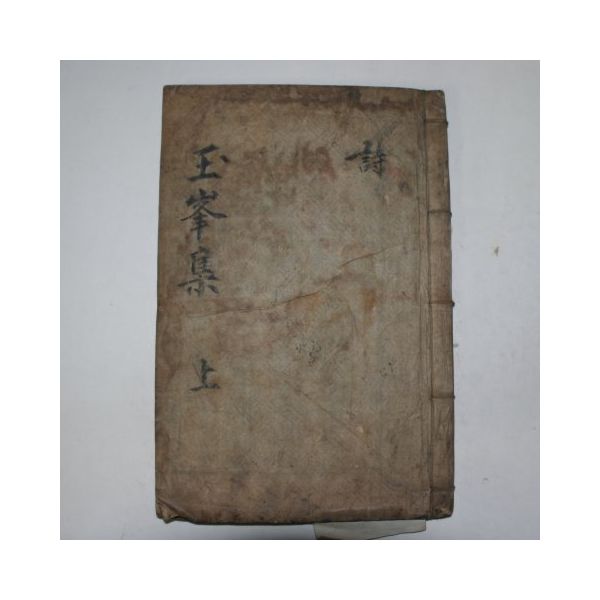 詩
玉峯集 上